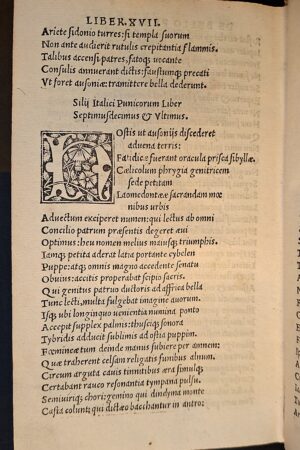 LIBER.XVII.
Ariete sidonio turres: si templa suorum
Non ante audierit rutulis crepitantia flammis.
Talibus accensi patres, fatoque uocante
Consulis annuerant dictis: faustumque precati
Vt foret ausoniæ: tramittere bella dederunt.
Silij Italici Punicorum Liber
Septimusdecimus & Vltimus.
Ostis ut ausonijs discederet
aduena terris:
Fatidicæ fuerant oracula prisca sibyllæ
Cælicolum phrygia genitricem
sede petitam
Laomedontæ sacrandam mœ
nibus urbis
Aduectum exciperet numen: qui lectus ab omni
Concilio patrum præsentis degeret æui
Optimus: heu nomen melius maiusque triumphis.
Iamque petita aderat latia portante cybelen
Puppe: atque omnis magno accedente senatu
Obuius: acciti properabat scipio sacris:
Qui genitus patruo ductoris ad affrica bella
Tunc lecti, multa fulgebat imagine auorum.
Isque ubi longinquo uenientia numina ponto
Accepit supplex palmis: thuscique sonora
Tybridis adducit sublimis ad ostia puppim.
Fœmineæ tum deinde manus subiere per amnem:
Quæ traherent celsam religatis funibus alnum.
Circum arguta cauis tinnitibus æra simulque
Certabant rauco resonantia tympana pulsu.
Semiuirique chori: gemino qui dindyma monte
Casta colunt; qui dictæo bacchantur in antro: